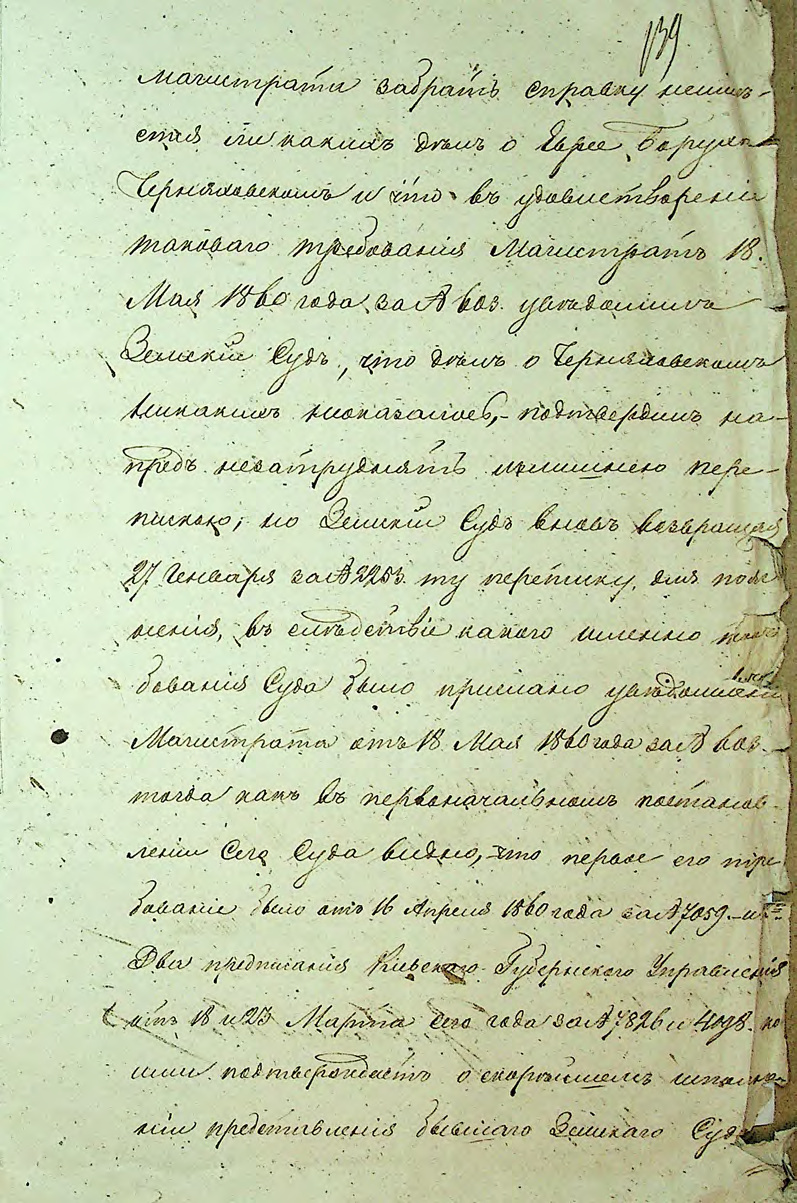 139
Магистрати забрать справку неиме-
ется ли какихъ дѣлъ о Евреѣ Борухѣ
Черняховскомъ и что въ удовлетвореніе
таковаго требованія Магистратъ 18.
Мая 1860 года за № 603. увѣдомилъ
Земскій Судъ, что дѣлъ о Черняховскомъ
никакихъ неоказалось,- подтвердилъ на-
предъ незатруднять излишнею пере-
пискою; но Земскій Судъ вновь возвращая
27 Генваря за № 2253. ту переписку, для пояс
ненія, въ слѣдствіе какого именно тре
бованія Суда было прислано увѣдомленіе
Магистрата отъ 18 Мая 1860 года за № 603.
тогда какъ въ первоначальномъ постанов-
леніи Сего Суда видно, что первое его тре
бованіе было отъ 16 Апреля 1860 года за № 7059.-
Два предписанія Кіевскаго Губернскаго Управленія
отъ 18 и 23 Марта сего года за № 7826 и 4098. ко
ими подтверждаетъ о скорѣйшемъ исполне-
ніи представленія бывшаго Земскаго Суда